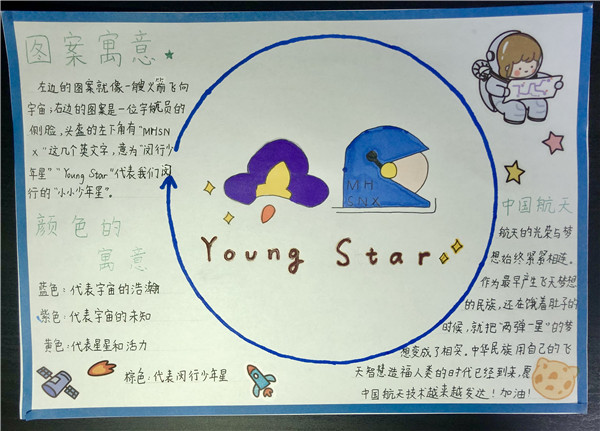 图案寓意
左边的图案就像一艘火箭飞向
宇宙;右边的图案是一位宇航员的
侧脸,头盔的左下角有"MHSN
X"这几个英文字,意为"闵行少
年星""Young Star"代表我们闵
行的"小小少年星"。
颜色的
寓意
蓝色:代表宇宙的浩瀚
紫色:代表宇宙的未知
黄色:代表星星和活力
棕色:代表闵行少年星
MH
SNX
Young Star
中国航天
航天的光荣与梦
想始终紧紧相连。
作为最早产生飞天梦想
的民族,还在饿着肚子的
时候,就把"两弹一星"的梦
想变成了相实。中华民族用自己的飞
天智慧造福人类的时代已经到来,愿
中国航天技术越来越发达!加油!